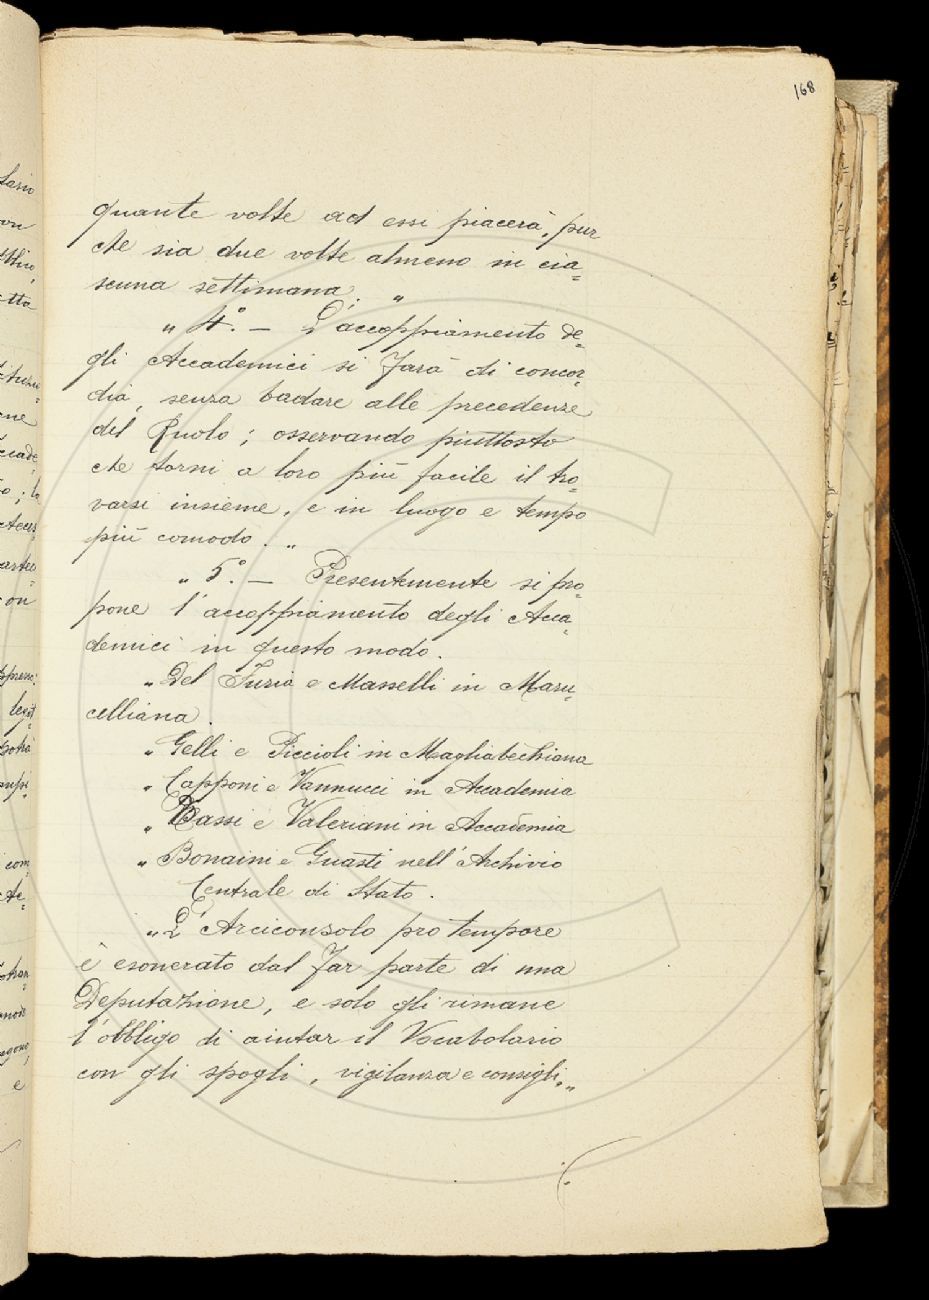 168
quante volte ad essi piacerà, pur
chè sia due volte almeno in cia=
scuna settimana. "
" 4.° — L'accoppiamento de=
gli Accademici si farà di concor=
dia, senza badare alle precedenze
del Ruolo; osservando piuttosto
che torni a loro più facile il tro=
varsi insieme, e in luogo e tempo
più comodo. "
" 5.° — Presentemente si pro=
pone l'accoppiamento degli Acca=
demici in questo modo.
" Del Furia e Masselli in Maru=
celliana.
" Gelli e Piccioli in Magliabechiana
" Capponi e Vannucci in Accademia
" Bassi e Valeriani in Accademia
" Bonaini e Guasti nell'Archivio
Centrale di Stato.
" L'Arciconsolo pro tempore
è esonerato dal far parte di una
Deputazione, e solo gli rimane
l'obbligo di aiutar il Vocabolario
con gli spogli, vigilanza e consigli. "